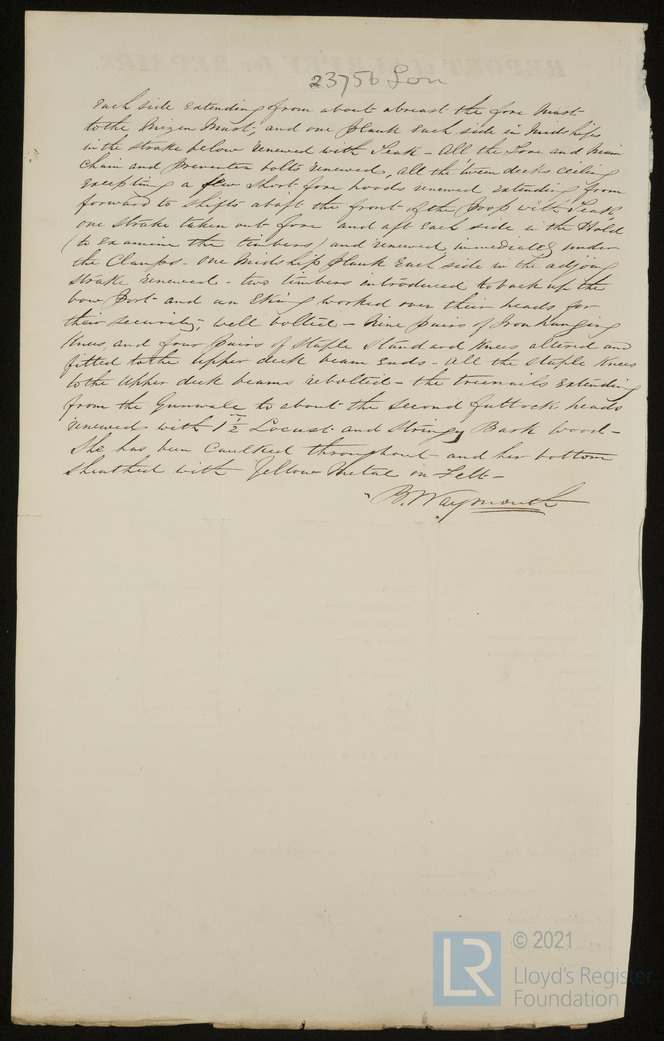 23756 Lon
Each side extending from about abreast the fore Mast
to the Mizen Mast, and one plank each side in Midships
in the strake below renewed with Teak - All the Fore and Main
Chain and preventer bolts renewed, all the 'tween decks ceiling
excepting a few short fore hoods renewed extending from
forward to shifts abaft the front of the Poop with Teak,
one strake taken out fore and aft each side in the Hold
(to examine the timbers) and renewed, immediately under
the Clamps - One Midship plank each side in the adjoing
strake renewed - two timbers introduced to back up the
bow Port and an Eking worked over their heads for
their security, well bolted - Nine pairs of Iron hanging
Knees, and four pairs of Staple Standard Knees altered and
fitted to the upper deck beam ends - All the staple Knees
to the upper deck beams rebolted - the treenails extending
from the Gunwale to about the second futtock heads
renewed with 1 1/2 Locust and Stringy Bark wood -
She has been Caulked throughout and her bottom
sheathed with Yellow Metal on Felt -
B. Waymouth
LR
© 2021
Lloyd's Register
Foundation